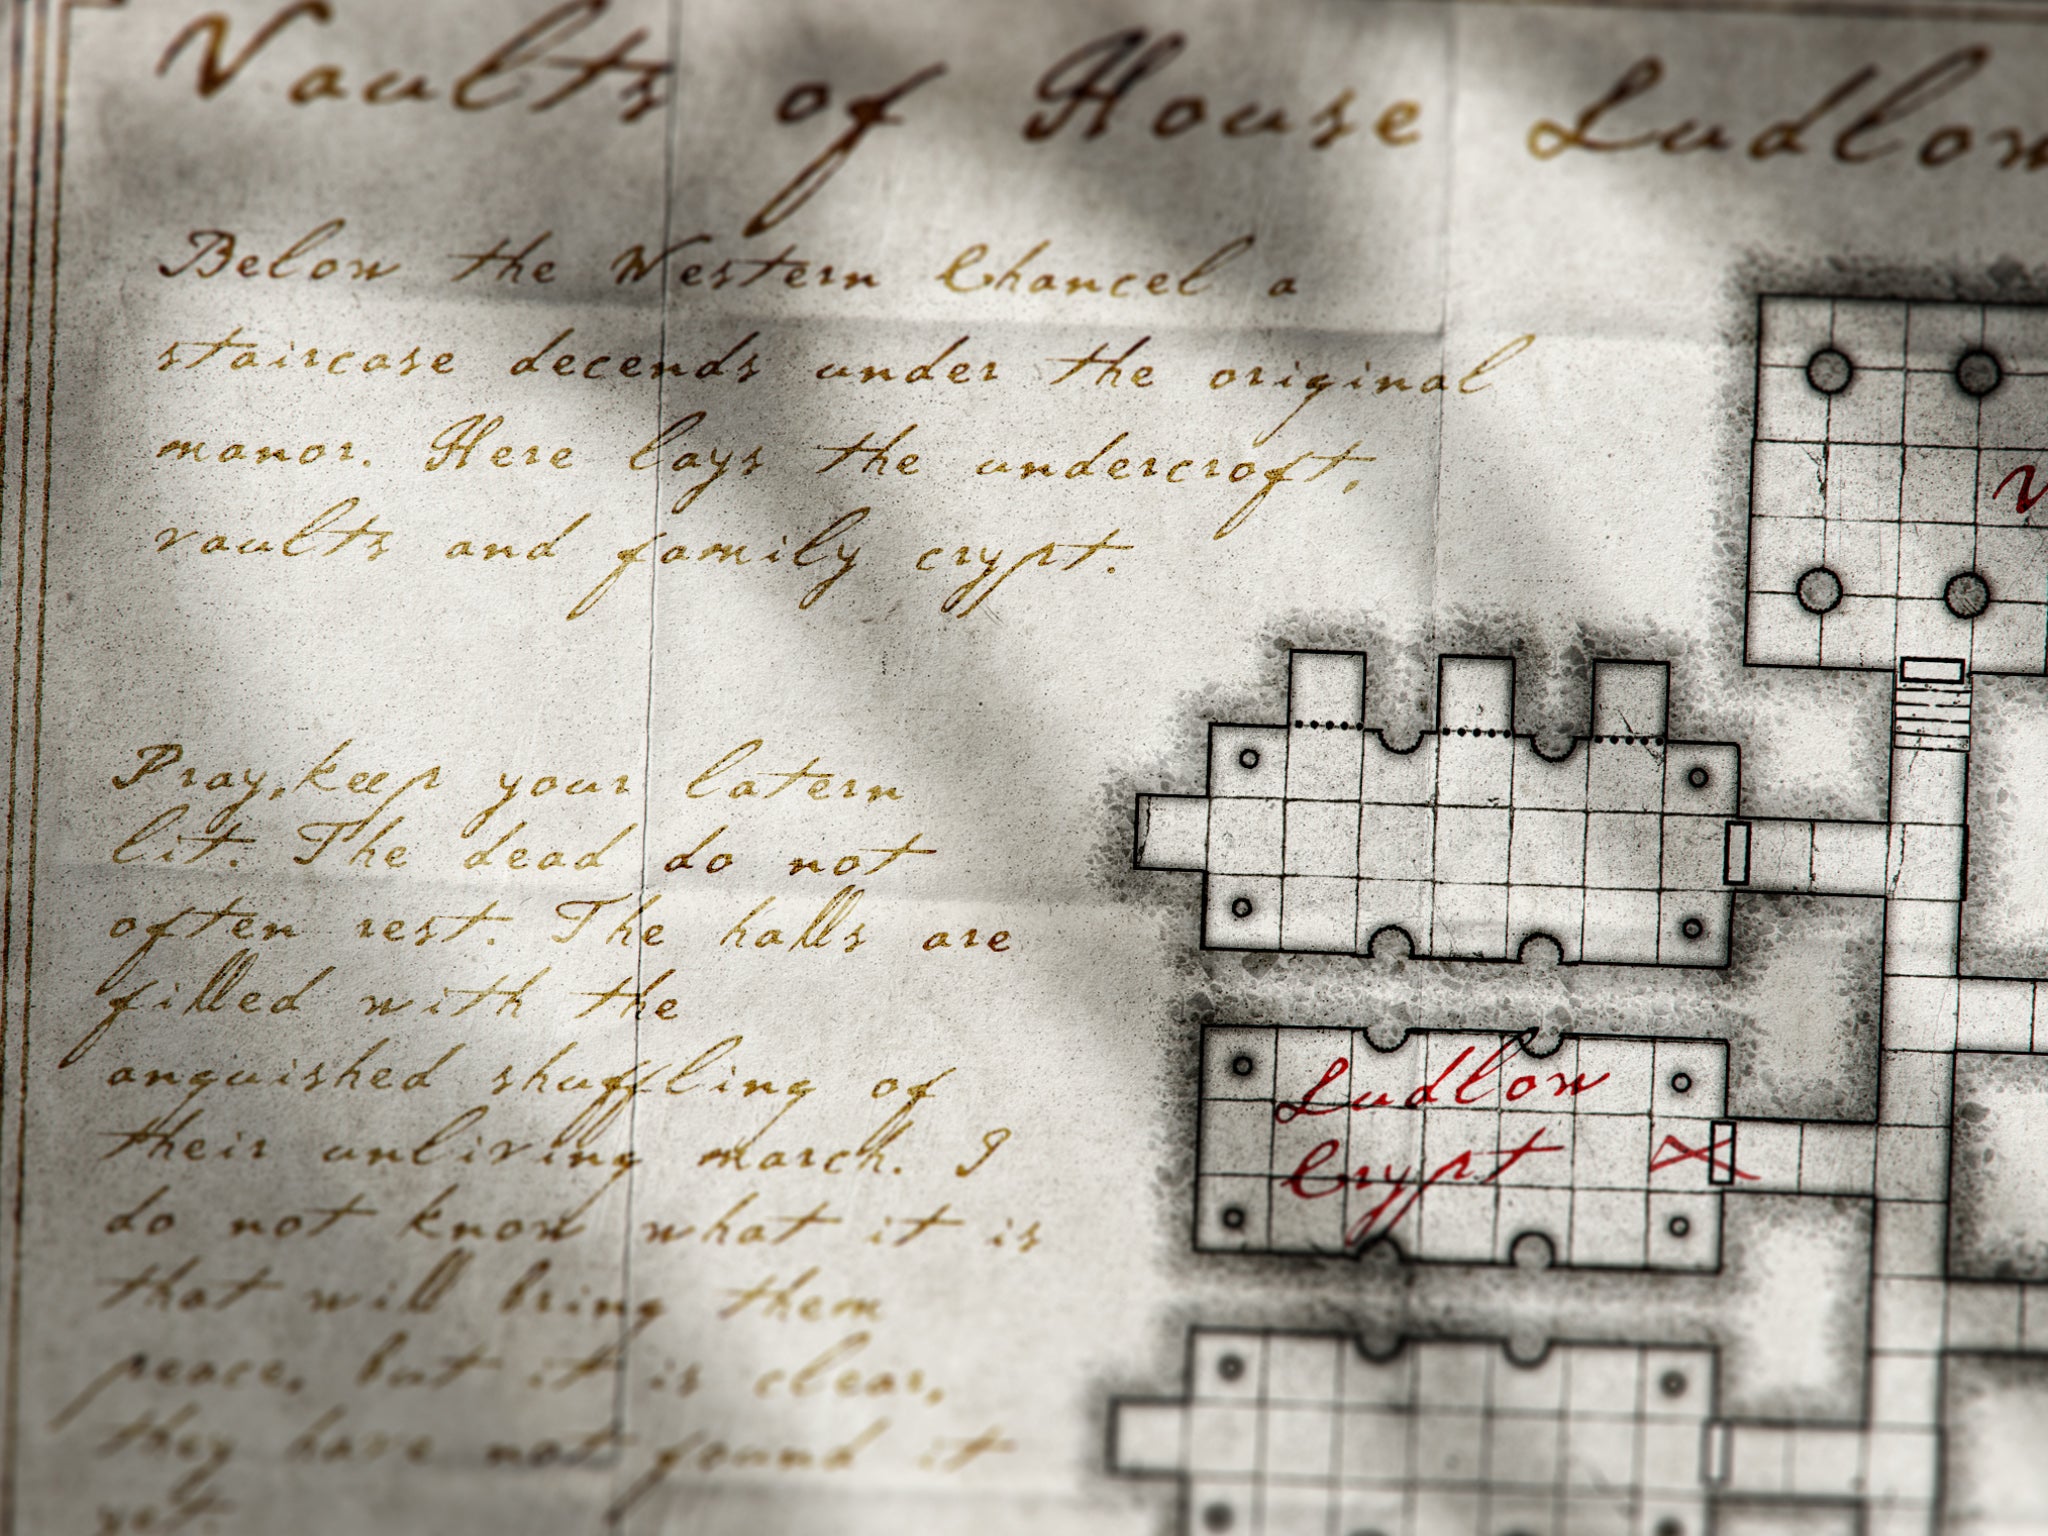 Vaults of House Ludlow
Below the Western Chancel a
staircase decends under the original
manor. Here lays the undercroft,
vaults and family crypt.
Pray, keep your latern
lit. The dead do not
often rest. The halls are
filled with the
anguished shuffling of
their unliving march. I
do not know what it is
that will bring them
peace, but it is clear,
they have not found it
yet.
Ludlow
Crypt